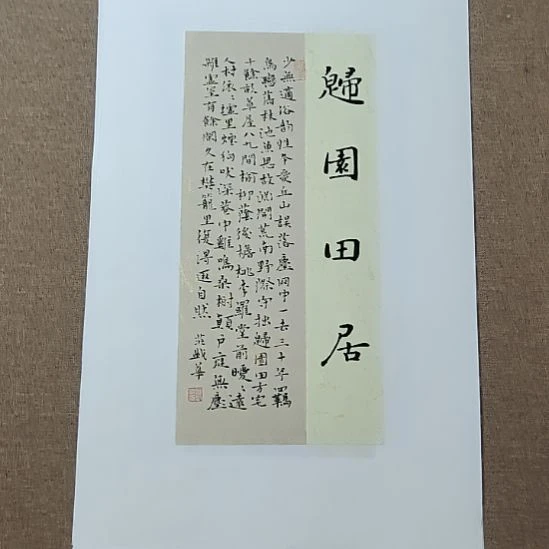 歸園田居
少無適俗韵性本愛丘山誤落塵网中一去三十年羈
鳥戀舊林池魚思故淵開荒南野際守拙歸園田方宅
十餘畝草屋八九間榆柳蔭後檐桃李羅堂前曖〻遠
人村依〻墟里煙狗吠深巷中雞鳴桑樹顛户庭無塵
雜虛室有餘閒久在樊籠里復得返自然 莊華